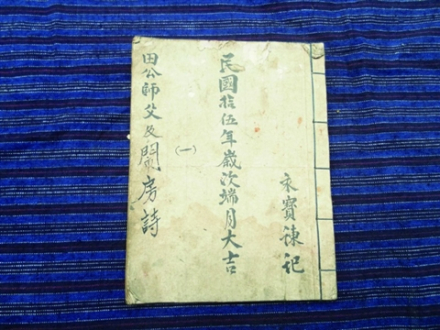 永寶陳記
民國拾伍年歲次端月大吉
(一)
田公師父及鬧房詩